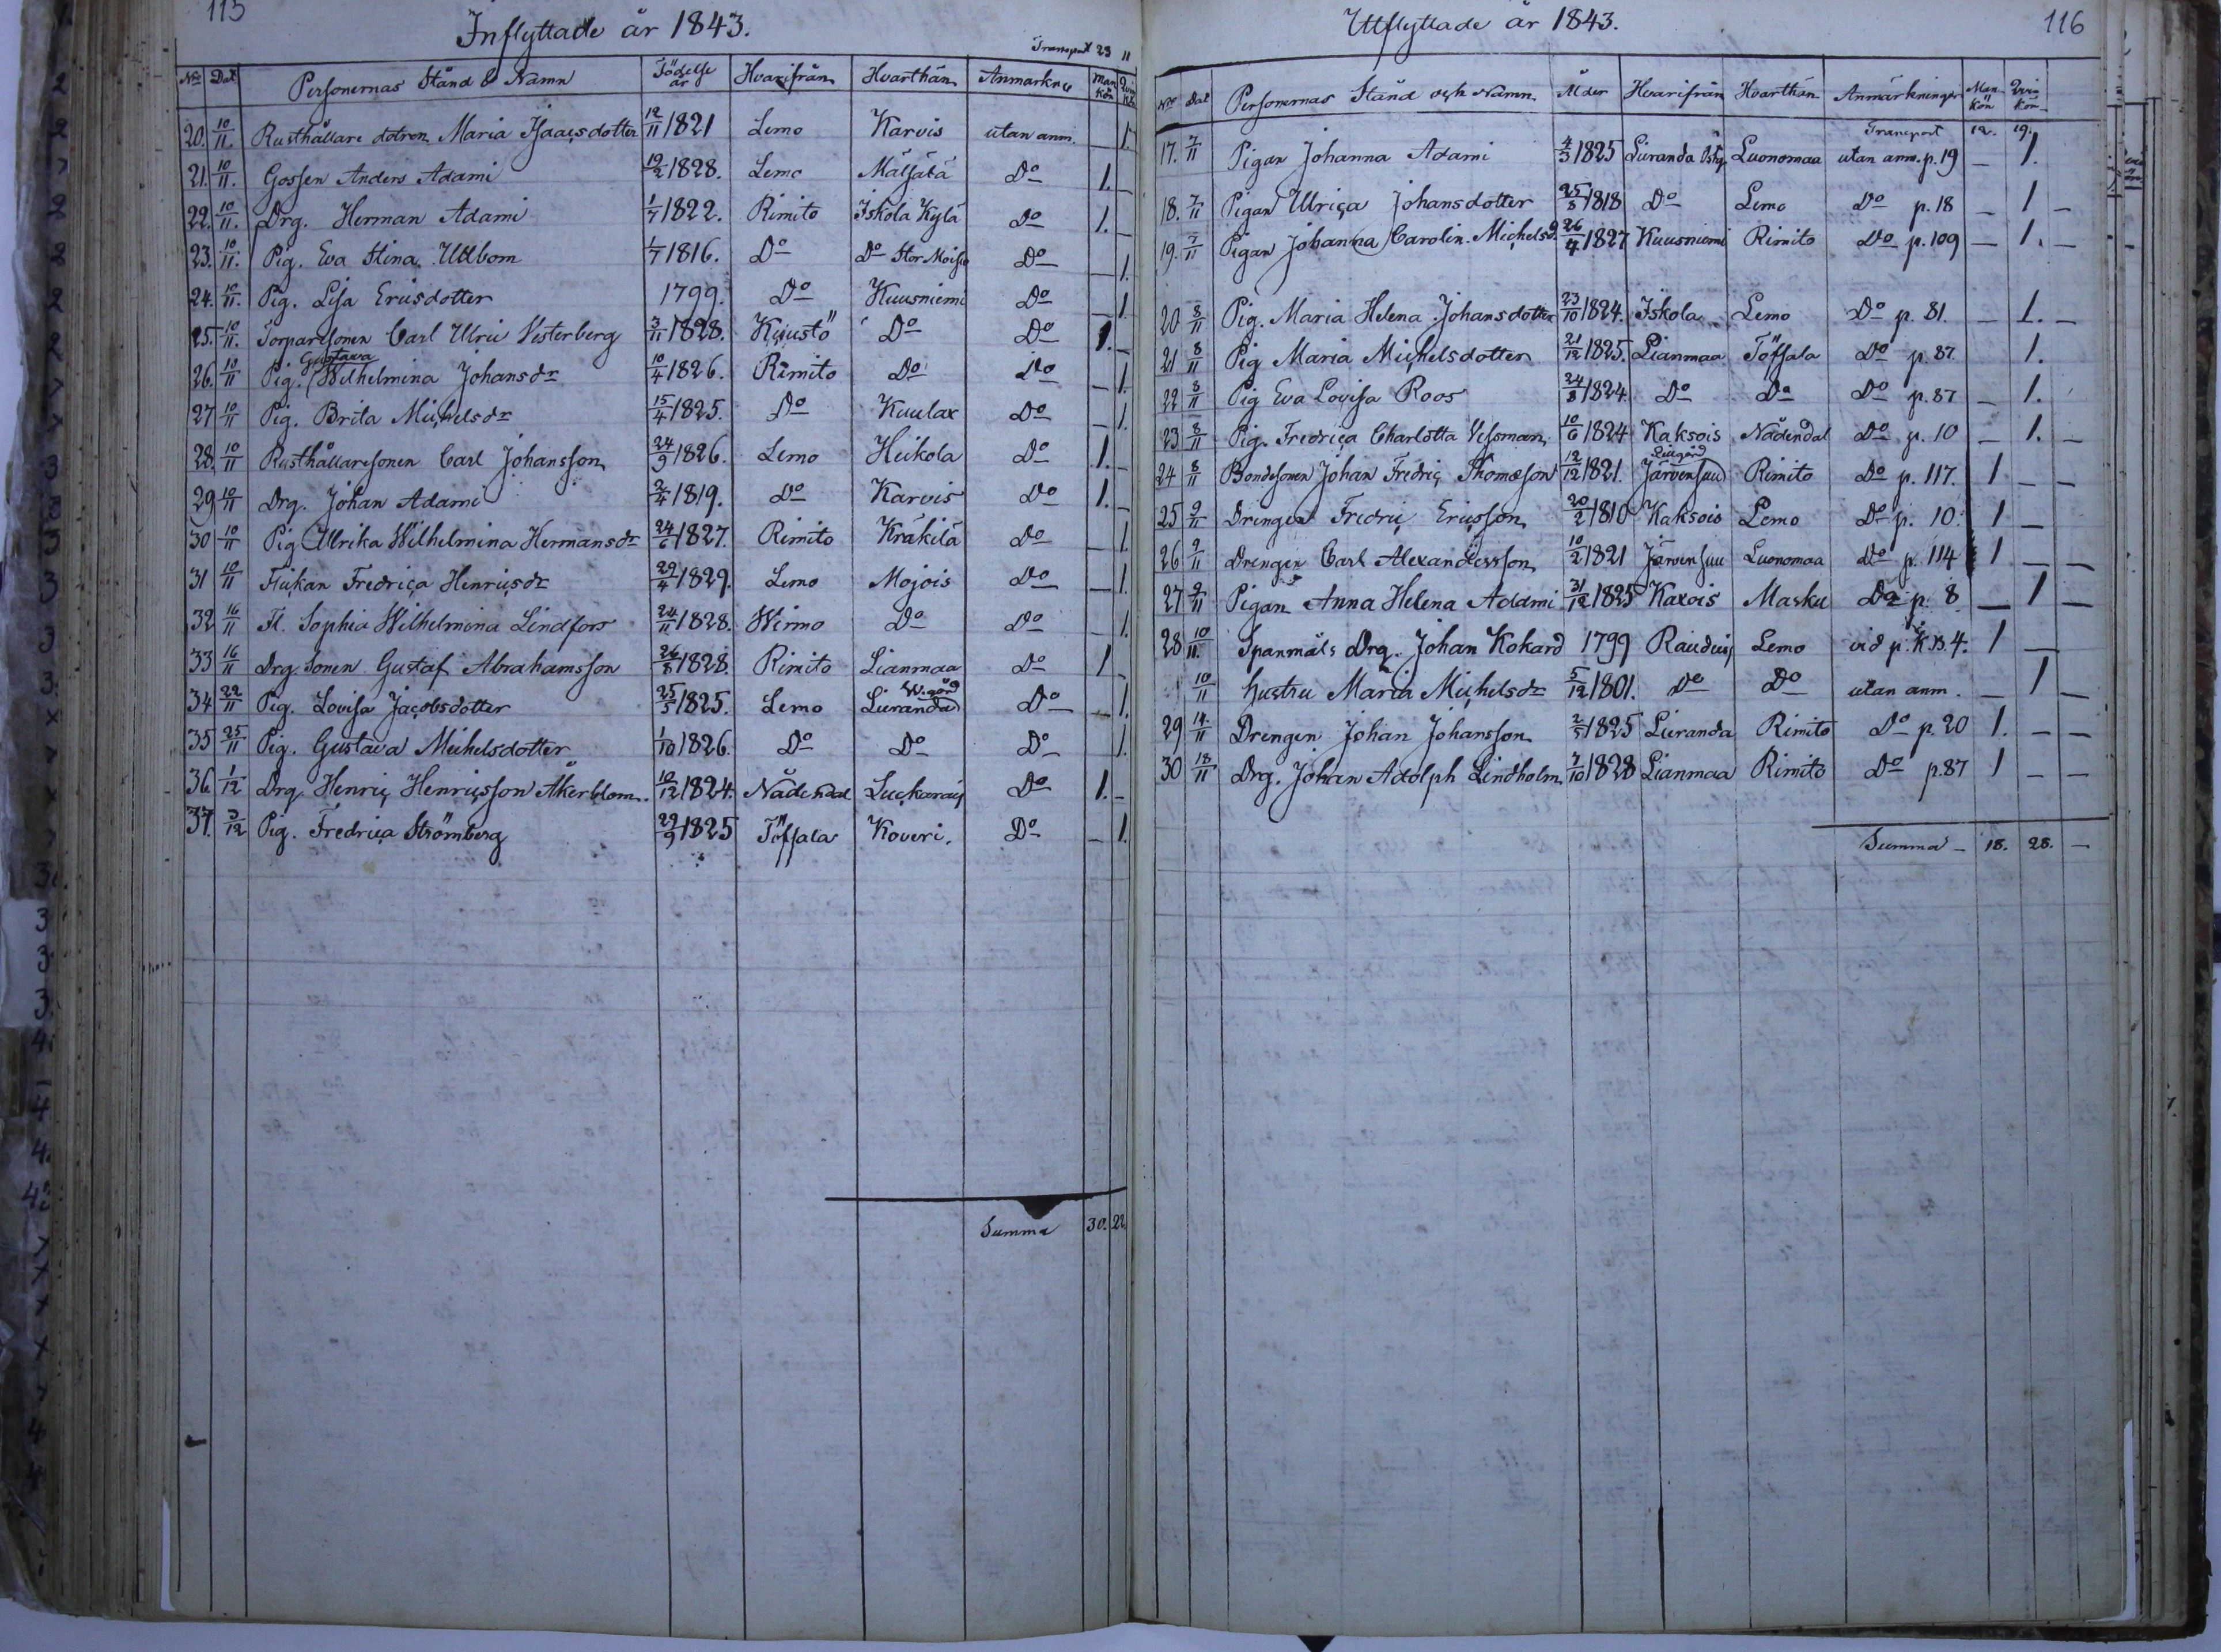 115
Inflyttade år 1843.
Transport 23 11
No Dat Personernas Stånd & Namn Födelse år Hvarifrån Hvarthän Anmärkn. Man kön Qvin kön
20. 10/11. Rusthållare dotren Maria Isaacsdotter 12/11 1821 Lemo Karvis utan anm. — 1.
21. 10/11. Gossen Anders Adami 19/2 1828. Lemo Mälsälä Do 1. —
22. 10/11. Drg. Herman Adami 1/7 1822. Rimito Iskola Kylä Do 1. —
23. 10/11. Pig. Eva Stina Ullbom 1/7 1816. Do Do Stor Moisio Do — 1.
24. 10/11. Pig. Lisa Ericsdotter 1799. Do Kuusniemi Do — 1.
25. 10/11. Torparesonen Carl Ulric Vesterberg 3/11 1828. Kuustö Do Do 1. —
26. 10/11 Pig. Gustava Wilhelmina Johansdr 10/4 1826. Rimito Do Do — 1.
27 10/11 Pig. Brita Michelsdr 15/4 1825. Do Kuulax Do — 1.
28. 10/11 Rusthållaresonen Carl Johansson 24/9 1826. Lemo Heikola Do 1. —
29 10/11 Drg. Johan Adami 2/4 1819. Do Karvis Do 1. —
30 10/11 Pig Ullrika Wilhelmina Hermansdr 24/6 1827. Rimito Kräkilä Do — 1.
31 10/11 Flickan Fredrica Henricsdr 29/4 1829. Lemo Mojois Do — 1.
32 16/11 Fl. Sophia Wilhelmina Lindfors 24/11 1828. Wirmo Do Do — 1.
33 16/11 Drg. Sonen Gustaf Abrahamsson 26/8 1828. Rimito Lianmaa Do 1 —
34 22/11 Pig. Lovisa Jacobsdotter 25/5 1825. Lemo Lieranda W.gård Do — 1.
35 25/11 Pig. Gustava Michelsdotter 1/10 1826. Do Do Do — 1.
36. 1/12 Drg. Henric Henricsson Åkerblom. 10/12 1824. Nådendal Luckaraij Do 1. —
37. 3/12 Pig. Fredrica Strömberg 29/9 1825 Töfsala Koveri. Do — 1.
Summa 30. 22.
Uttflyttade år 1843.
116
No Dat Personernas Stånd och Namn Ålder Hvarifrån Hvarthän Anmärkningar Man kön Qvin kön
Transport 12. 19.
17. 7/11 Pigan Johanna Adami 4/3 1825 Lieranda Östg. Luonomaa utan anm. p. 19 — 1.
18. 7/11 Pigan Ulrica Johansdotter 25/8 1818 Do Lemo Do p. 18 — 1 —
19. 7/11 Pigan Johanna Carolin. Michelsd. 26/4 1827 Kuusniemi Rimito Do p. 109 — 1. —
20 8/11 Pig. Maria Helena Johansdotter 23/10 1824. Iskola Lemo Do p. 81. — 1. —
21 8/11 Pig Maria Michelsdotter 21/12 1825. Lianmaa Töfsala Do p. 87. 1.
22 8/11 Pig Eva Lovisa Roos 24/8 1824 Do Do Do p. 87 — 1.
23 8/11 Pig. Fredrica Charlotta Vessman 10/6 1824 Kaksois Nådendal Do p. 10 — 1. —
24 8/11 Bondesonen Johan Fredric Thomasson 12/12 1821. Järvensuu Lillgård Rimito Do p. 117. 1 — —
25 9/11 Drengen Fredric Ericsson 20/2 1810 Kaksois Lemo Do p. 10. 1 —
26 9/11 Drengen Carl Alexandersson 10/2 1821 Järvensuu Luonomaa Do p. 114 1 — —
27 9/11 Pigan Anna Helena Adami 31/12 1825 Kaxois Masku Do p. 8 — 1 —
28 10/11. Spanmåls Drg. Johan Kokard 1799 Rauduis Lemo vid p. K.B. 4. 1 —
10/11 hustru Maria Michelsdr 5/12 1801. Do Do utan anm. — 1 —
29 14/11 Drengen Johan Johansson 2/5 1825 Lieranda Rimito Do p. 20 1. — —
30 18/11 Drg. Johan Adolph Lindholm. 7/10 1828 Lianmaa Rimito Do p. 87 1 — —
Summa — 18. 28. —